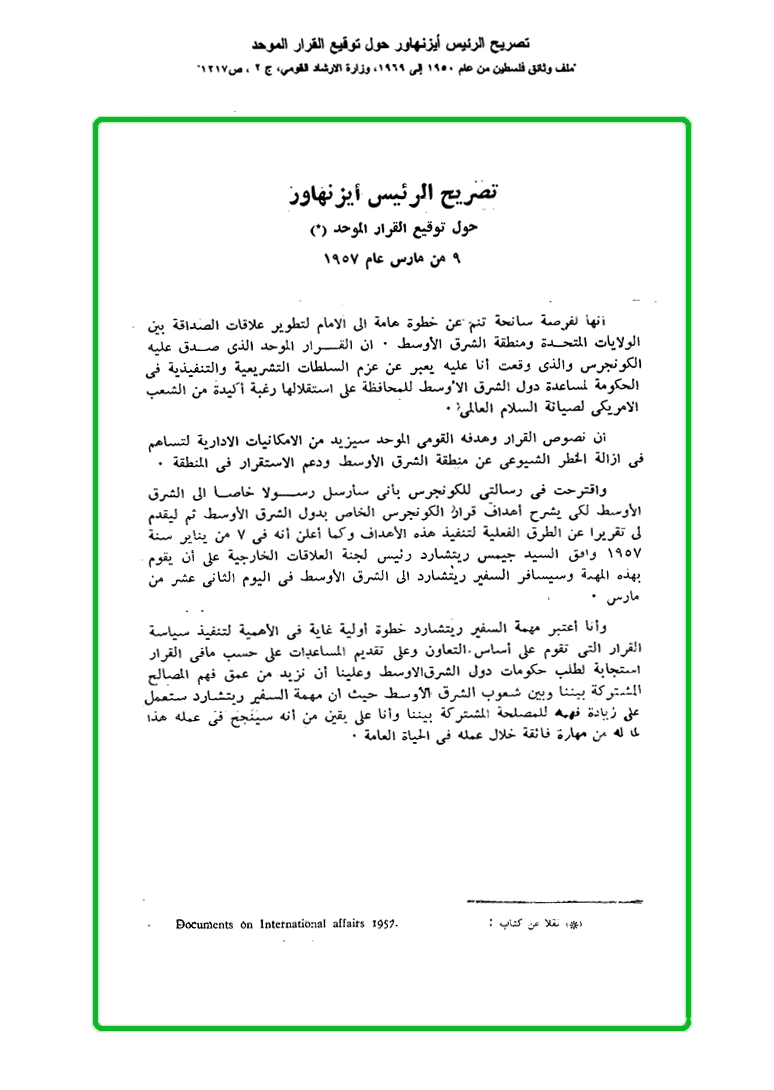 تصريح الرئيس أيزنهاور حول توقيع القرار الموحد
"ملف وثائق فلسطين من عام ١٩٥٠ إلى ١٩٦٩، وزارة الارشاد القومي، ج ٢ ، ص ١٢١٧"
تصريح الرئيس أيزنهاور
حول توقيع القرار الموحد (*)
٩ من مارس عام ١٩٥٧
انها لفرصة سانحة تنم عن خطوة هامة الى الامام لتطوير علاقات الصداقة بين
الولايات المتحدة ومنطقة الشرق الأوسط ٠ ان القرار الموحد الذى صدق عليه
الكونجرس والذى وقعت أنا عليه يعبر عن عزم السلطات التشريعية والتنفيذية فى
الحكومة لمساعدة دول الشرق الأوسط للمحافظة على استقلالها رغبة أكيدة من الشعب
الامريكى لصيانة السلام العالمى ٠
ان نصوص القرار وهدفه القومى الموحد سيزيد من الامكانيات الادارية لتساهم
فى ازالة الخطر الشيوعى عن منطقة الشرق الأوسط ودعم الاستقرار فى المنطقة ٠
واقترحت فى رسالتى للكونجرس بأنى سأرسل رسولا خاصا الى الشرق
الأوسط لكى يشرح أهداف قرار الكونجرس الخاص بدول الشرق الأوسط ثم ليقدم
لى تقريرا عن الطرق الفعلية لتنفيذ هذه الأهداف وكما أعلن أنه فى ٧ من يناير سنة
١٩٥٧ وافق السيد جيمس ريتشارد رئيس لجنة العلاقات الخارجية على أن يقوم
بهذه المهمة وسيسافر السفير ريتشارد الى الشرق الأوسط فى اليوم الثانى عشر من
مارس ٠
وأنا أعتبر مهمة السفير ريتشارد خطوة أولية غاية فى الأهمية لتنفيذ سياسة
القرار التى تقوم على أساس التعاون وعلى تقديم المساعدات على حسب مافى القرار
استجابة لطلب حكومات دول الشرق الاوسط وعلينا أن نزيد من عمق فهم المصالح
المشتركة بيننا وبين شعوب الشرق الأوسط حيث ان مهمة السفير ريتشارد ستعمل
على زيادة فهمه للمصلحة المشتركة بيننا وأنا على يقين من أنه سينجح فى عمله هذا
لما له من مهارة فائقة خلال عمله فى الحياة العامة ٠
(*) نقلا عن كتاب : Documents on International affairs 1957.